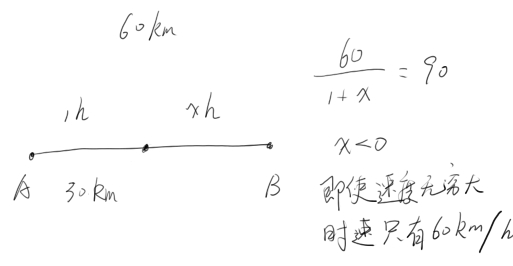 60km
1h
xh
A
30km
B
60/(1+x) = 90
x<0
即使速度无穷大
时速只有60km/h